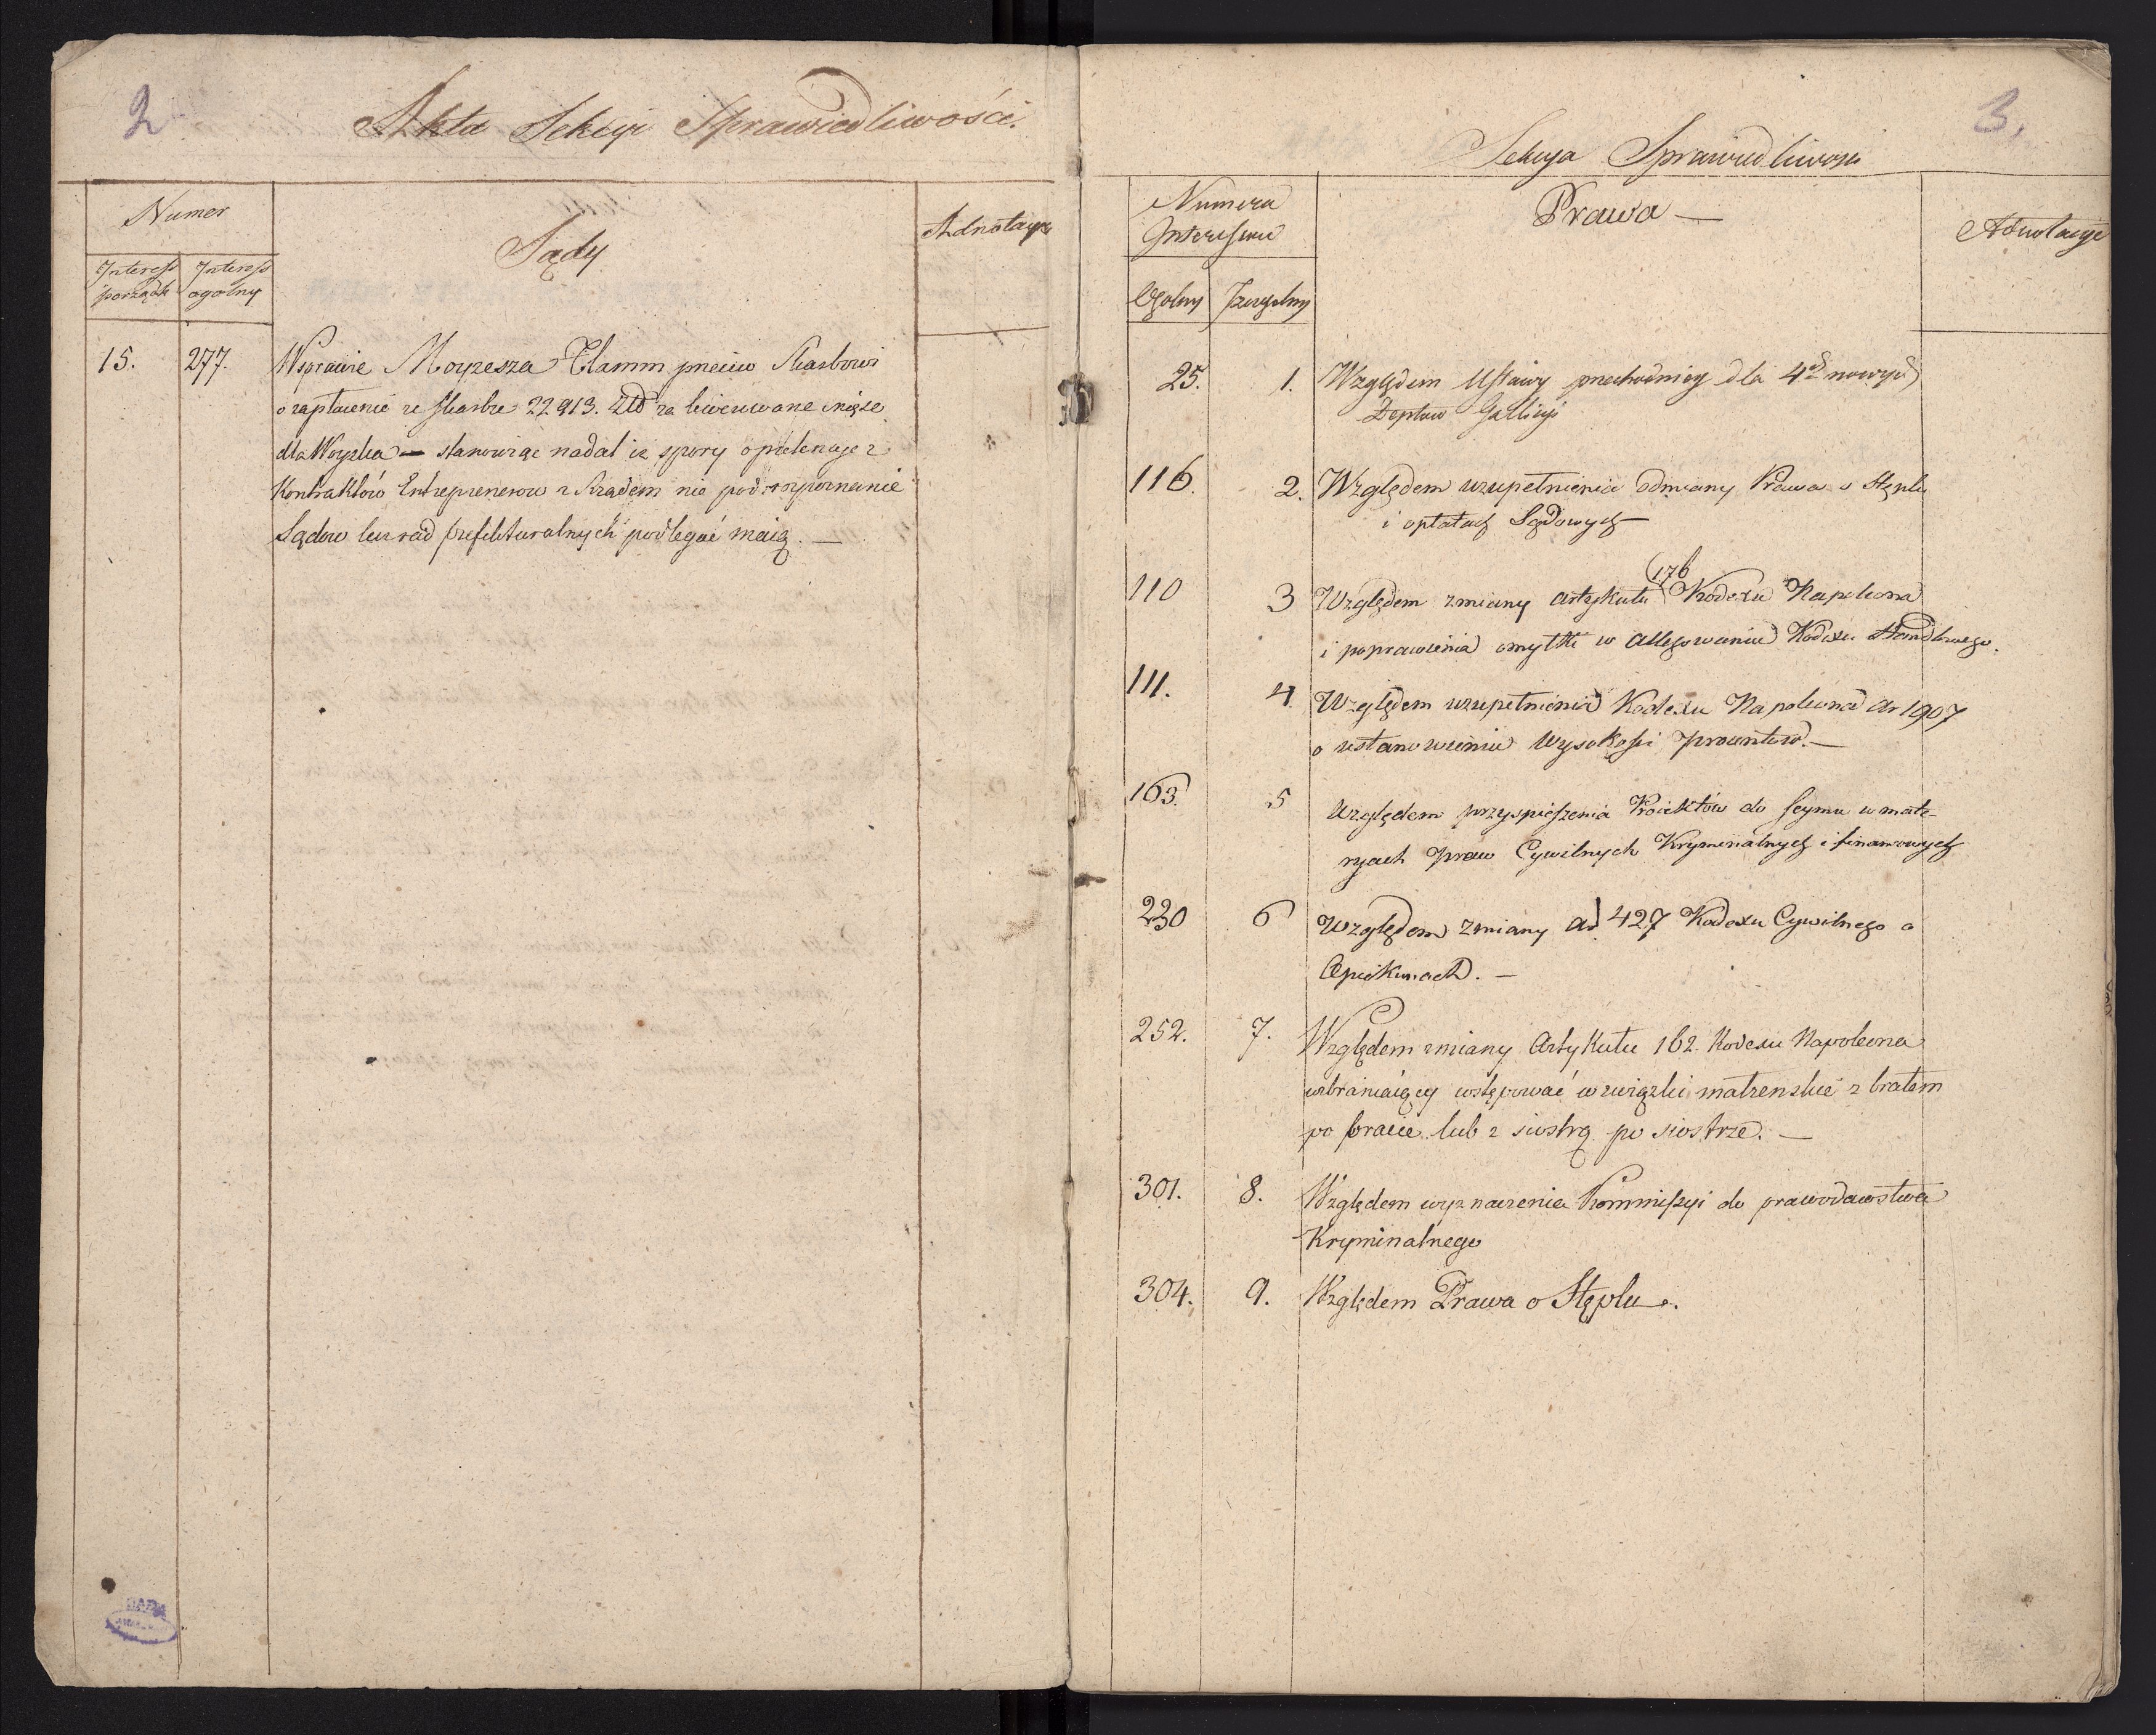 2
Akta Sekcyi Sprawiedliwości.
Numer
Interess porządk
Interess ogolny
Sądy
Adnotacye
15. 277. W sprawie Moyzesza Flamm przeciw Skarbowi
o zapłacenie ze skarbu 22913. Złł za liwerowane mięso
dla Woyska — stanowiąc nadal iż spory o pretensye z
Kontraktów Entreprenerow z Rządem nie pod rozpoznanie
Sądow lecz rad prefekturalnych podlegać maią. —
3.
Sekcya Sprawiedliwosci
Numera Interessu
Ogolny
Szczegolny
Prawa —
Adnotacye
25. 1. Względem Ustawy przechodniey dla 4ch nowych
Deptow Gallicyi
116. 2. Względem uzupełnienia odmiany Prawa o Stęplu
i opłatach Sądowych —
110 3 Względem zmiany artykułu (176 Kodexu Napoleona
i poprawienia omyłki w allegowaniu Kodexu Handlowego.
111. 4. Względem uzupełnienia Kodexu Napoleona Ar 1907
o ustanowieniu wysokości procentow. —
163. 5 Względem przyspieszenia Proiektów do Seymu w mate-
ryach praw Cywilnych Kryminalnych i finansowych
230 6 Względem zmiany ar 427 Kodexu Cywilnego o
Opiekunach. —
252. 7. Względem zmiany Artykułu 162. Kodexu Napoleona
wzbraniaiącey wstępować w związki małzenskie z bratem
po bracie lub z siostrą po siostrze. —
301. 8. Względem wyznaczenia Kommissyi do prawodawstwa
Kryminalnego
304. 9. Względem Prawa o Stęplu.